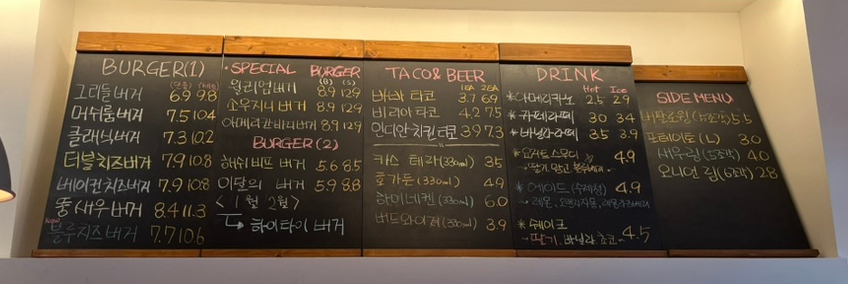 BURGER(1)
(단품) (세트)
그리들버거 6.9 9.8
머쉬룸버거 7.5 10.4
클래식버거 7.3 10.2
더블치즈버거 7.9 10.8
베이컨치즈버거 7.9 10.8
통새우버거 8.4 11.3
New
블루치즈버거 7.7 10.6
SPECIAL BURGER
(B) (S)
윌리엄버거 8.9 12.9
소우지니버거 8.9 12.9
아메리칸바비버거 8.9 12.9
BURGER(2)
해쉬비프 버거 5.6 8.5
이달의 버거 5.9 8.8
<1월 2월>
하이타이 버거
TACO & BEER
1EA 2EA
바바 타코 3.7 6.9
비리아 타코 4.2 7.5
인디안치킨타코 3.9 7.3
카스 테라(330ml) 3.5
호가든(330ml) 4.9
하이네켄(330ml) 6.0
버드와이저(330ml) 3.9
DRINK
Hot Ice
*아메리카노 2.5 2.9
*카페라떼 3.0 3.4
*바닐라라떼 3.5 3.9
*요거트스무디 4.9
*에이드(수제청) 4.9
*쉐이크
딸기, 바닐라, 초코 4.5
SIDE MENU
5.5
포테이토(L) 3.0
새우링(5조각) 4.0
오니언 링(6조각) 2.8